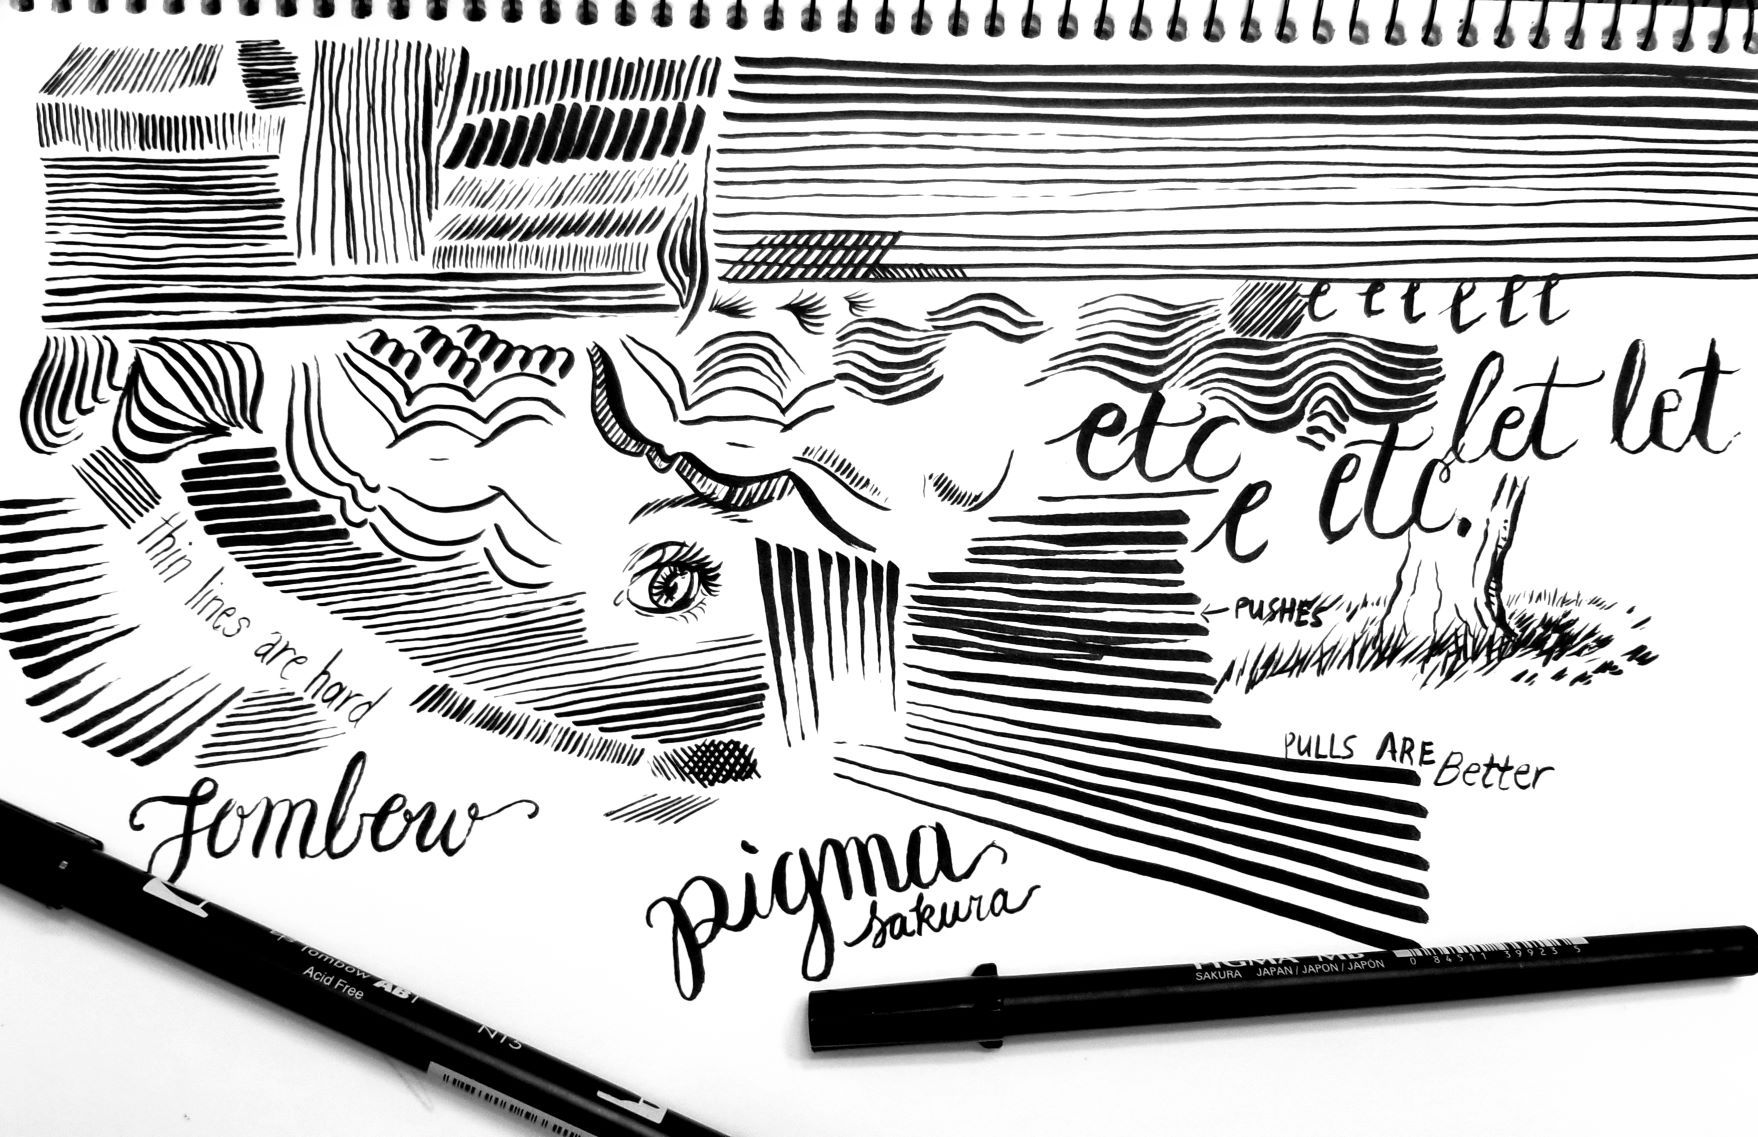 e e e e e e
let let
etc
etc.
e
thin lines are hard
← PUSHES
PULLS ARE Better
Tombow
pigma
sakura
Tombow ABT
Acid Free
N15
PIGMA MB
SAKURA JAPAN / JAPON / JAPÓN
0 84511 39923 5